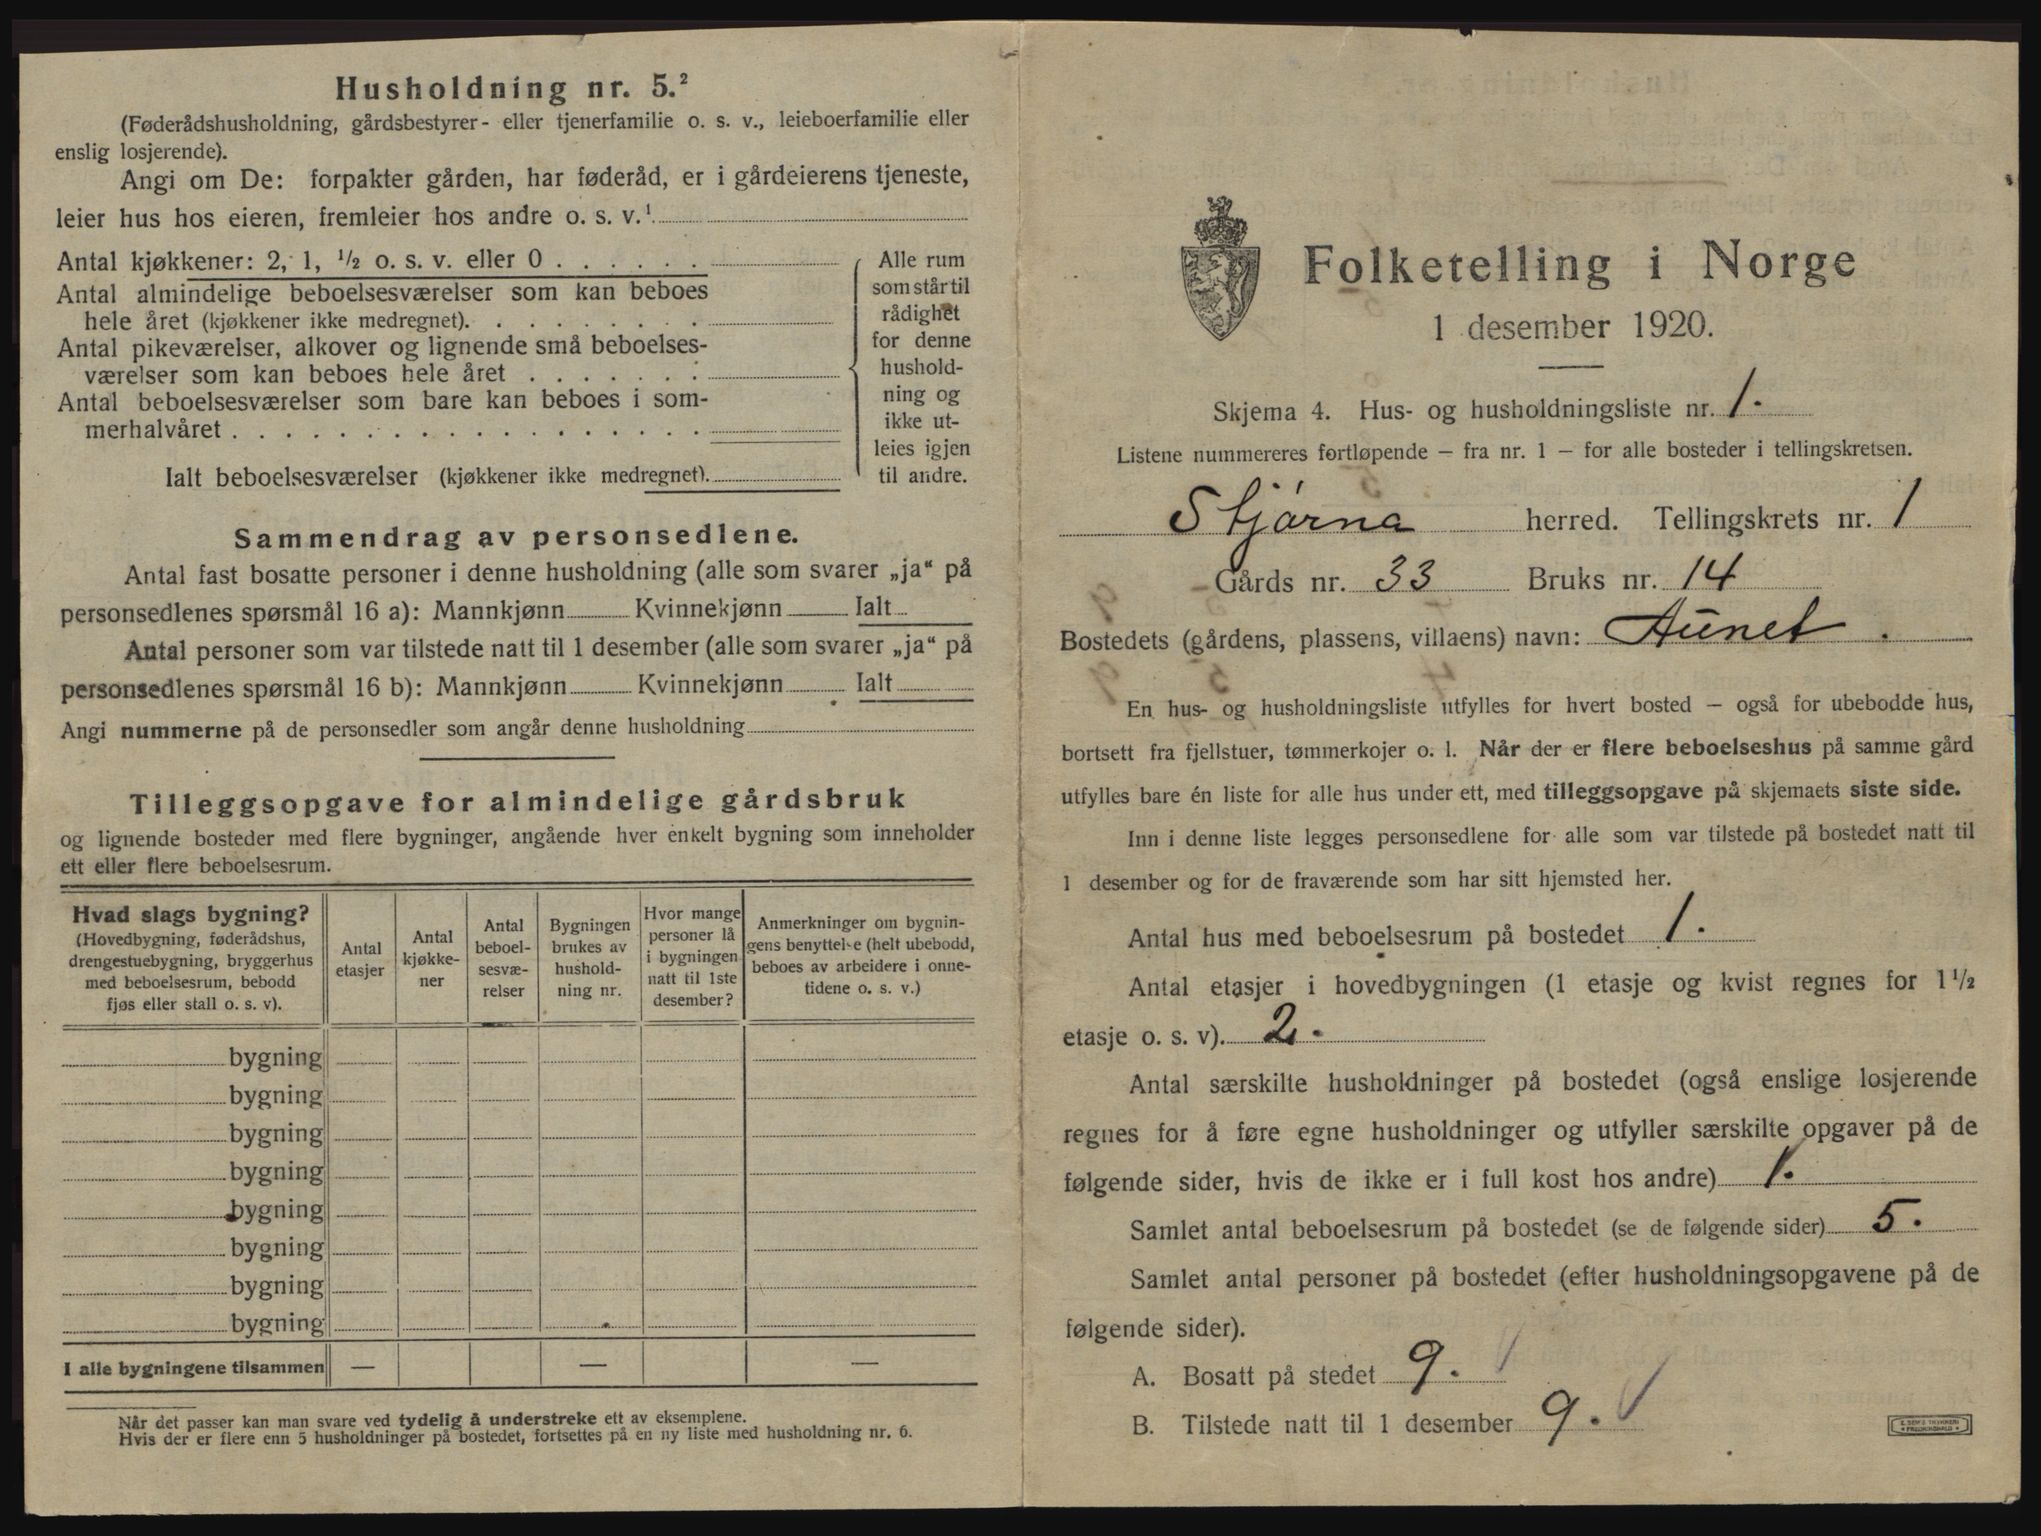 Husholdning nr. 5.²
(Føderådshusholdning, gårdsbestyrer- eller tjenerfamilie o. s. v., leieboerfamilie eller
enslig losjerende).
Angi om De: forpakter gården, har føderåd, er i gårdeierens tjeneste,
leier hus hos eieren, fremleier hos andre o. s. v.¹
Antal kjøkkener: 2, 1, ½ o. s. v. eller 0
Antal almindelige beboelsesværelser som kan beboes
hele året (kjøkkener ikke medregnet).
Antal pikeværelser, alkover og lignende små beboelses-
værelser som kan beboes hele året
Antal beboelsesværelser som bare kan beboes i som-
merhalvåret
Ialt beboelsesværelser (kjøkkener ikke medregnet).
Alle rum
som står til
rådighet
for denne
hushold-
ning og
ikke ut-
leies igjen
til andre.
Sammendrag av personsedlene.
Antal fast bosatte personer i denne husholdning (alle som svarer „ja“ på
personsedlenes spørsmål 16 a): Mannkjønn Kvinnekjønn Ialt
Antal personer som var tilstede natt til 1 desember (alle som svarer „ja“ på
personsedlenes spørsmål 16 b): Mannkjønn Kvinnekjønn Ialt
Angi nummerne på de personsedler som angår denne husholdning
Tilleggsopgave for almindelige gårdsbruk
og lignende bosteder med flere bygninger, angående hver enkelt bygning som inneholder
ett eller flere beboelsesrum.
Hvad slags bygning?
(Hovedbygning, føderådshus,
drengestuebygning, bryggerhus
med beboelsesrum, bebodd
fjøs eller stall o. s. v).
Antal
etasjer
Antal
kjøkke-
ner
Antal
beboel-
sesvæ-
relser
Bygningen
brukes av
hushold-
ning nr.
Hvor mange
personer lå
i bygningen
natt til 1ste
desember?
Anmerkninger om bygnin-
gens benyttelse (helt ubebodd,
beboes av arbeidere i onne-
tidene o. s. v.)
bygning
bygning
bygning
bygning
bygning
bygning
bygning
bygning
I alle bygningene tilsammen — — —
Når det passer kan man svare ved tydelig å understreke ett av eksemplene.
Hvis der er flere enn 5 husholdninger på bostedet, fortsettes på en ny liste med husholdning nr. 6.
Folketelling i Norge
1 desember 1920.
Skjema 4. Hus- og husholdningsliste nr. 1.
Listene nummereres fortløpende – fra nr. 1 – for alle bosteder i tellingskretsen.
Stjørna herred. Tellingskrets nr. 1
Gårds nr. 33 Bruks nr. 14
Bostedets (gårdens, plassens, villaens) navn: Aunet.
En hus- og husholdningsliste utfylles for hvert bosted – også for ubebodde hus,
bortsett fra fjellstuer, tømmerkojer o. l. Når der er flere beboelseshus på samme gård
utfylles bare én liste for alle hus under ett, med tilleggsopgave på skjemaets siste side.
Inn i denne liste legges personsedlene for alle som var tilstede på bostedet natt til
1 desember og for de fraværende som har sitt hjemsted her.
Antal hus med beboelsesrum på bostedet 1.
Antal etasjer i hovedbygningen (1 etasje og kvist regnes for 1½
etasje o. s. v). 2.
Antal særskilte husholdninger på bostedet (også enslige losjerende
regnes for å føre egne husholdninger og utfyller særskilte opgaver på de
følgende sider, hvis de ikke er i full kost hos andre) 1.
Samlet antal beboelsesrum på bostedet (se de følgende sider) 5.
Samlet antal personer på bostedet (efter husholdningsopgavene på de
følgende sider).
A. Bosatt på stedet 9.
B. Tilstede natt til 1 desember 9.